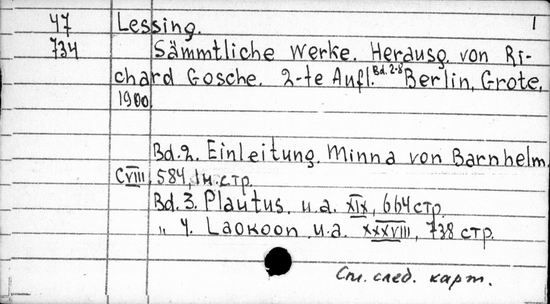 47 Lessing. 1
734 Sämmtliche Werke. Herausg. von Ri-
chard Gosche. 2-te Aufl. Bd. 2-8 Berlin, Grote,
1900
Bd. 2. Einleitung. Minna von Barnhelm.
CVIII, 584, 1н. стр.
Bd. 3. Plautus. u. a. XIX, 664 стр.
„ 4. Laokoon u. a. XXXVIII, 738 стр.
См. след. карт.